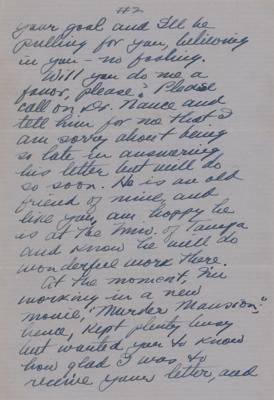 #2
your goal and I'll be
pulling for you, believing
in you – no fooling.
Will you do me a
favor, please? Please
call on Dr. Nance and
tell him for me that I
am sorry about being
so late in answering
his letter but will do
so soon. He is an old
friend of mine, and
like you, am happy he
is at the Univ. of Tampa
and know he will do
wonderful work there.
At the moment, I'm
working in a new
movie, "Murder Mansion,"
hence, kept plenty busy
but wanted you to know
how glad I was to
receive your letter, and